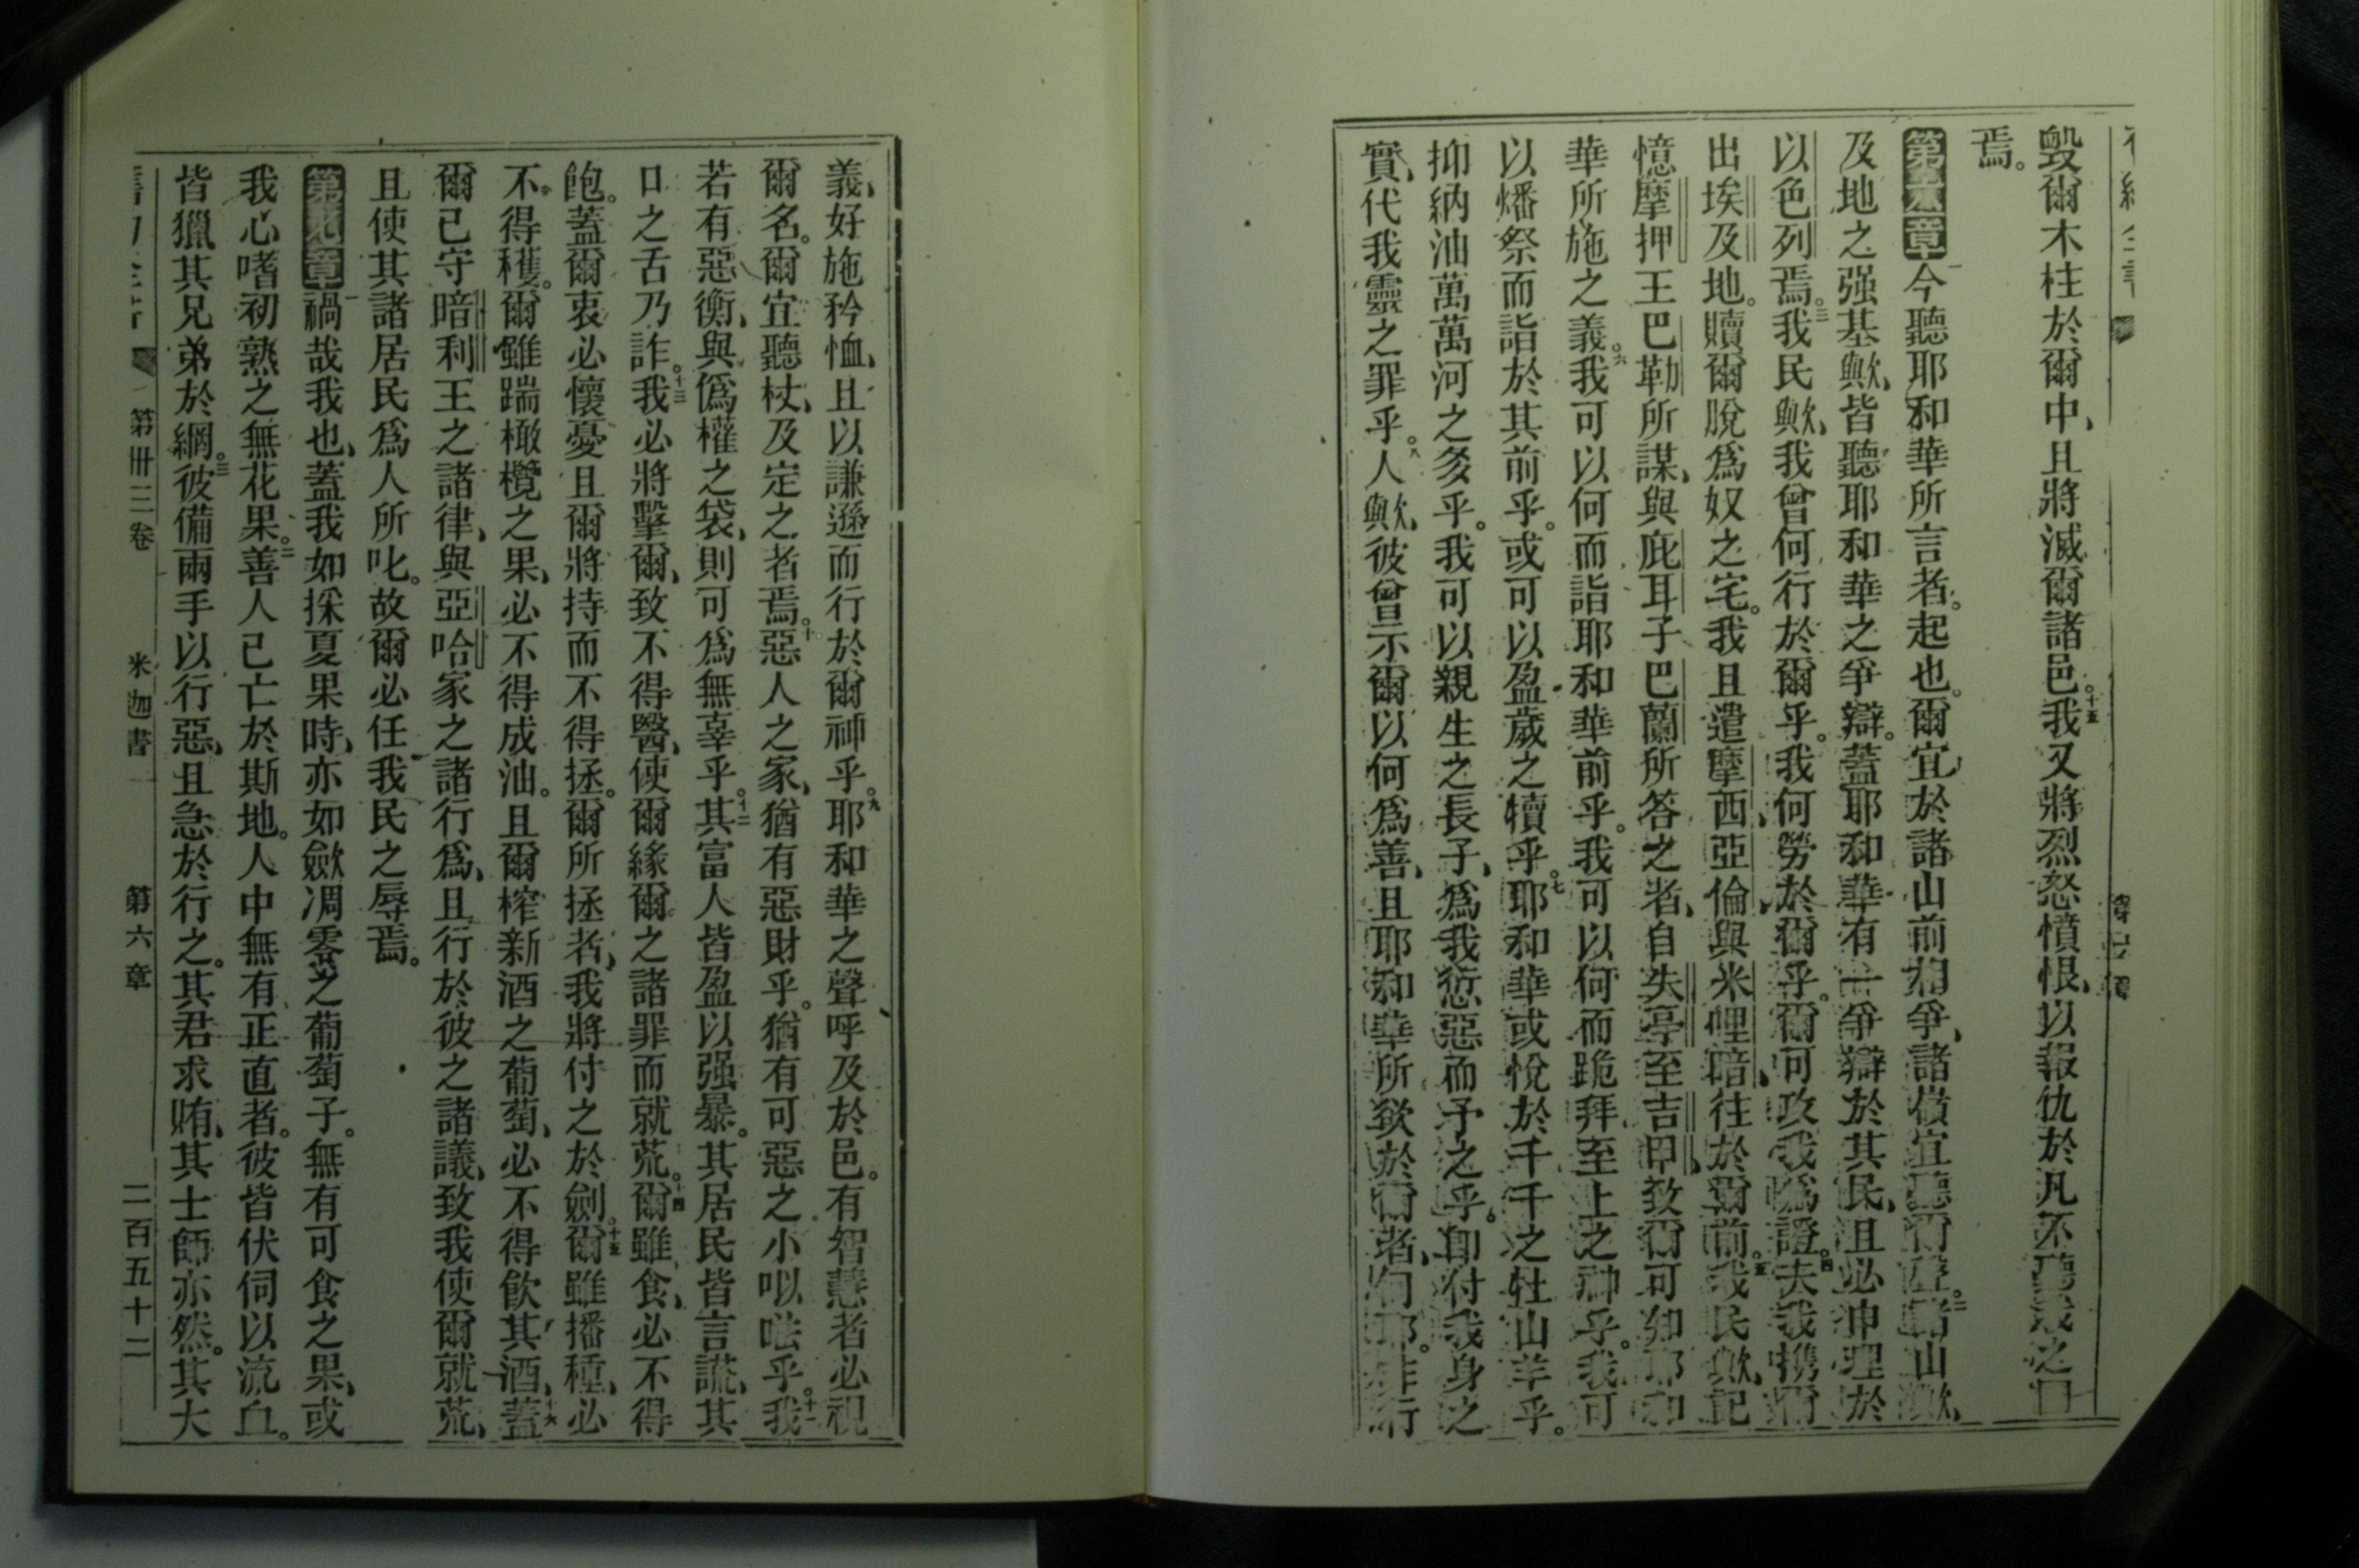 毀爾木柱於爾中、且將滅爾諸邑。十五我又將烈怒憤恨、以報仇於凡不聽我之日
焉。
第六章一今聽耶和華所言者。起也。爾宜於諸山前相爭、諸嶺宜聽爾聲。二諸山歟、
及地之强基歟、皆聽耶和華之爭辯。蓋耶和華有一爭辯於其民、且必伸理於
以色列焉。三我民歟、我曾何行於爾乎。我何勞於爾乎。爾可攻我爲證。四夫我携爾
出埃及地。贖爾脫爲奴之宅。我且遣摩西、亞倫、與米哩暗、往於爾前。五我民歟、記
憶摩押王巴勒所謀、與庇耳子巴蘭所答之者、自失亭至吉甲、致爾可知耶和
華所施之義。六我可以何而詣耶和華前乎。我可以何而跪拜至上之神乎。我可
以燔祭而詣於其前乎。或可以盈歲之犢乎。七耶和華或悅於千千之牡山羊乎。
抑納油萬萬河之多乎。我可以親生之長子、爲我愆惡而予之乎。卽付我身之
實、代我靈之罪乎。八人歟、彼曾示爾以何爲善、且耶和華所欲於爾者、何耶。非行
義、好施矜恤、且以謙遜而行於爾神乎。九耶和華之聲呼及於邑。有智慧者必視
爾名。爾宜聽杖、及定之者焉。十惡人之家、猶有惡財乎。猶有可惡之小㕥嗞乎。十一我
若有惡衡、與僞權之袋、則可爲無辜乎。十二其富人皆盈以强暴。其居民皆言謊、其
口之舌乃詐。十三我必將擊爾、致不得醫、使爾緣爾之諸罪而就荒。十四爾雖食、必不得
飽。蓋爾衷必懷憂且爾將持而不得拯。爾所拯者、我將付之於劍。十五爾雖播種、必
不得穫。爾雖踹橄欖之果、必不得成油。且爾榨新酒之葡萄、必不得飮其酒、十六蓋
爾已守暗利王之諸律、與亞哈家之諸行爲、且行於彼之諸議、致我使爾就荒、
且使其諸居民爲人所叱。故爾必任我民之辱焉。
第七章一禍哉我也、蓋我如採夏果時、亦如歛凋零之葡萄子。無有可食之果、或
我心嗜初熟之無花果。二善人已亡於斯地。人中無有正直者。彼皆伏伺以流血。
皆獵其兄弟於網。三彼備兩手以行惡、且急於行之。其君求賄、其士師亦然。其大
第卅三卷 米迦書 第六章 二百五十二